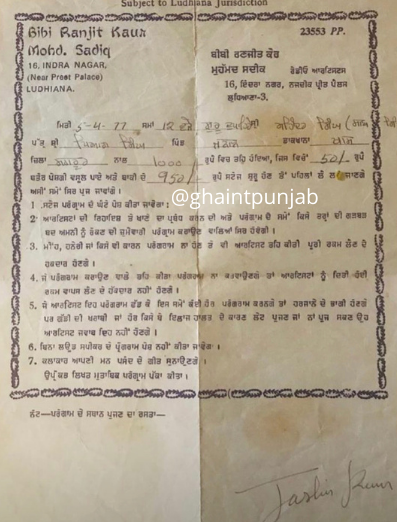 Subject to Ludhiana Jurisdiction
Bibi Ranjit Kaur
Mohd. Sadiq
16, INDRA NAGAR,
(Near Preet Palace)
LUDHIANA.
23553 PP.
ਬੀਬੀ ਰਣਜੀਤ ਕੌਰ
ਮੁਹੰਮਦ ਸਦੀਕ ਰੇਡੀਓ ਆਰਟਿਸਟਸ
16, ਇੰਦਰਾ ਨਗਰ, ਨਜ਼ਦੀਕ ਪ੍ਰੀਤ ਪੈਲਸ
ਲੁਧਿਆਣਾ-3.
ਮਿਤੀ 5-4-77 ਸਮਾਂ 12 ਵਜੇ
ਪੁੱਤ੍ਰ ਸ੍ਰੀ ਸਿੰਘ ਪਿੰਡ ਡਾਕਖਾਨਾ ਖਾਸ
ਜ਼ਿਲਾ ਨਾਲ 1000 ਰੁਪੈ ਵਿਚ ਤਹਿ ਹੋਇਆ, ਜਿਸ ਵਿਚੋਂ 50/- ਰੁਪੈ
ਬਤੌਰ ਪੇਸ਼ਗੀ ਵਸੂਲ ਪਾਏ ਅਤੇ ਬਾਕੀ ਦੇ 950/- ਰੁਪੈ ਸਟੇਜ ਸ਼ੁਰੂ ਹੋਣ ਤੋਂ ਪਹਿਲਾਂ ਲੈ ਲਏ ਜਾਣਗੇ
ਅਸੀਂ ਸਮੇਂ ਸਿਰ ਪੁਜ ਜਾਵਾਂਗੇ ।
@ghaintpunjab
1. ਸਟੇਜ ਪਰੋਗਰਾਮ ਦੋ ਘੰਟੇ ਪੇਸ਼ ਕੀਤਾ ਜਾਵੇਗਾ ।
2. ਆਰਟਿਸਟਾਂ ਦੀ ਰਿਹਾਇਸ਼ ਤੇ ਖਾਣੇ ਦਾ ਪ੍ਰਬੰਧ ਕਰਨ ਦੀ ਅਤੇ ਪਰੋਗਰਾਮ ਦੇ ਸਮੇਂ ਕਿਸੇ ਤਰ੍ਹਾਂ ਦੀ ਗੜਬੜ
ਬਦ ਅਮਨੀ ਨੂੰ ਰੋਕਣ ਦੀ ਜ਼ੁਮੇਵਾਰੀ ਪਰੋਗਰਾਮ ਕਰਾਉਣ ਵਾਲਿਆਂ ਸਿਰ ਹੋਵੇਗੀ ।
3. ਮੀਂਹ, ਹਨੇਰੀ ਜਾਂ ਕਿਸੇ ਵੀ ਕਾਰਨ ਪਰੋਗਰਾਮ ਨਾ ਹੋਣ ਤੇ ਵੀ ਆਰਟਿਸਟ ਤਹਿ ਕੀਤੀ ਪੂਰੀ ਰਕਮ ਲੈਣ ਦੇ
ਹੱਕਦਾਰ ਹੋਣਗੇ ।
4. ਜੇ ਪਰੋਗਰਾਮ ਕਰਾਉਣ ਵਾਲੇ ਤਹਿ ਕੀਤਾ ਪਰੋਗਰਾਮ ਨਾ ਕਰਵਾਉਣਗੇ ਤਾਂ ਆਰਟਿਸਟਾਂ ਨੂੰ ਦਿੱਤੀ ਹੋਈ
ਰਕਮ ਵਾਪਸ ਲੈਣ ਦੇ ਹੱਕਦਾਰ ਨਹੀਂ ਹੋਣਗੇ ।
5. ਜੇ ਆਰਟਿਸਟ ਇਹ ਪਰੋਗਰਾਮ ਛੱਡ ਕੇ ਇਸ ਸਮੇਂ ਕੋਈ ਹੋਰ ਪਰੋਗਰਾਮ ਕਰਨਗੇ ਤਾਂ ਹਰਜਾਨੇ ਦੇ ਭਾਗੀ ਹੋਣਗੇ
ਪਰ ਗੱਡੀ ਦੀ ਖਰਾਬੀ ਜਾਂ ਹੋਰ ਕਿਸੇ ਦੇ ਕਾਰਣ ਲੇਟ ਪੁਜਣ ਜਾਂ ਨਾਂ ਪੁਜ ਸਕਣ ਉਹ
ਆਰਟਿਸਟ ਜਵਾਬ ਦੇਹ ਨਹੀਂ ਹੋਣਗੇ ।
6. ਬਿਨਾਂ ਲਾਊਡ ਸਪੀਕਰ ਦੇ ਪ੍ਰੋਗਰਾਮ ਪੇਸ਼ ਨਹੀਂ ਕੀਤਾ ਜਾਵੇਗਾ ।
7. ਕਲਾਕਾਰ ਆਪਣੀ ਮਨ ਪਸੰਦ ਦੇ ਗੀਤ ਸੁਨਾਉਣਗੇ ।
ਉਪ੍ਰੋਕਤ ਲਿਖਤ ਮੁਤਾਬਿਕ ਪਰੋਗਰਾਮ ਪੱਕਾ ਕੀਤਾ ।
ਨੋਟ—ਪਰੋਗਰਾਮ ਦੇ ਸਥਾਨ ਪੁਜਣ ਦਾ ਰਸਤਾ—